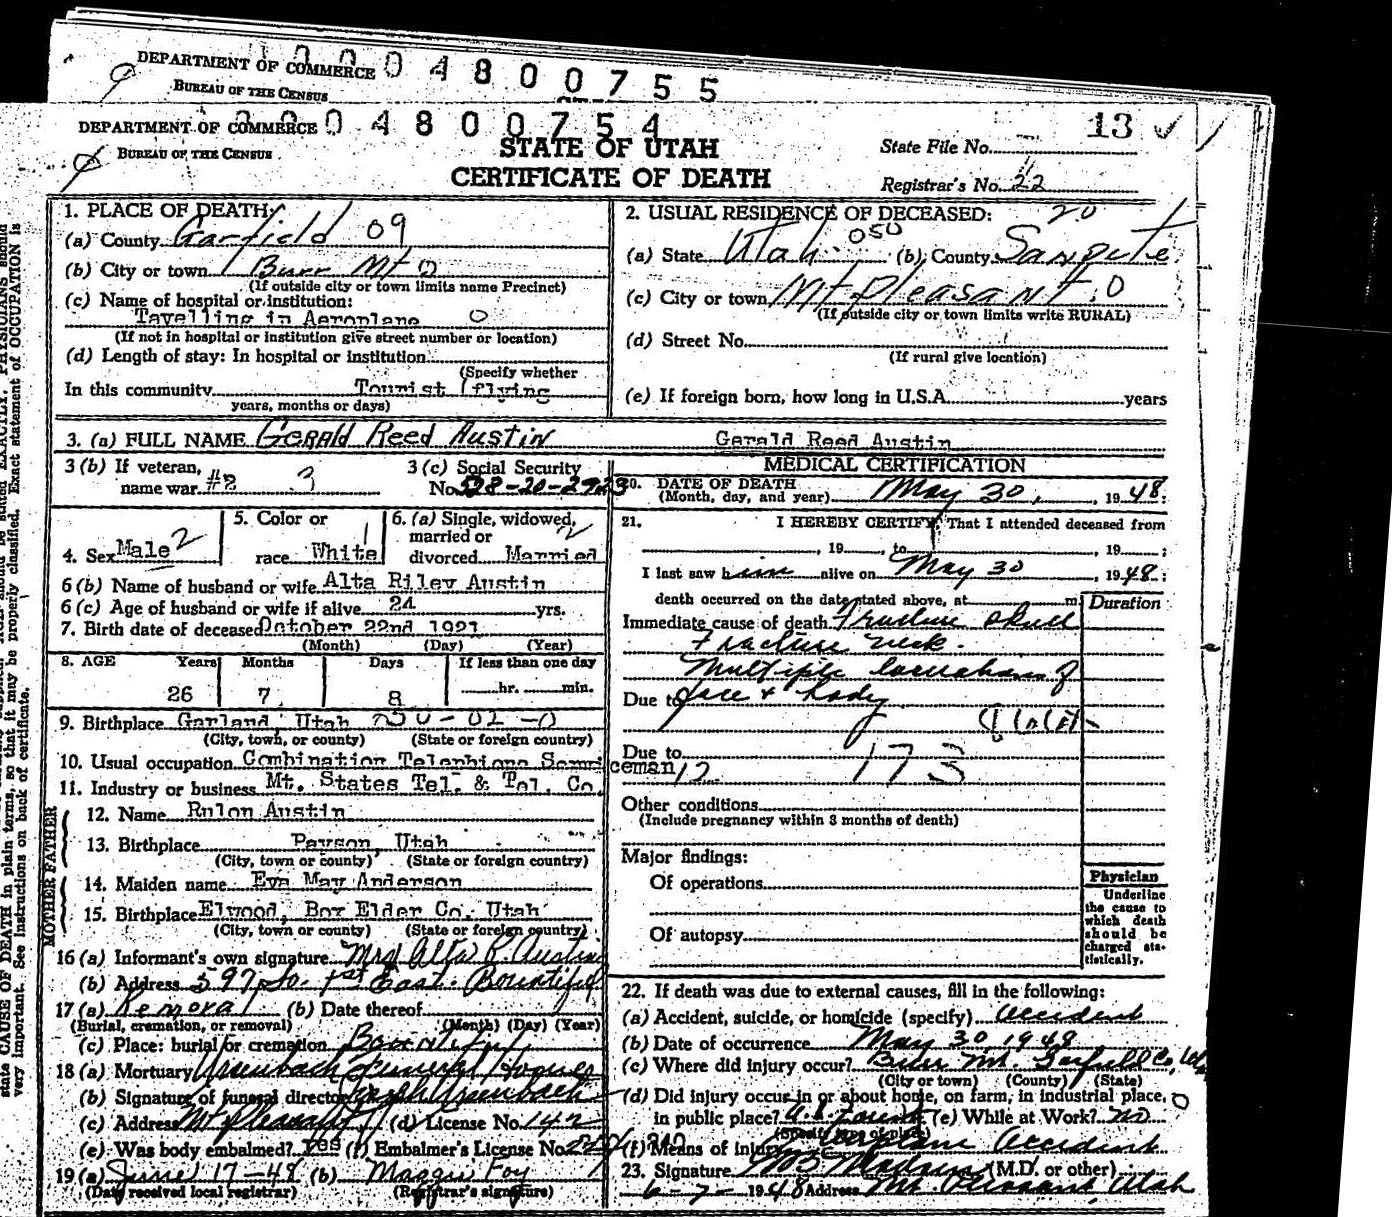 DEPARTMENT OF COMMERCE 0004800755
BUREAU OF THE CENSUS
DEPARTMENT OF COMMERCE 0004800754 13
BUREAU OF THE CENSUS
STATE OF UTAH
CERTIFICATE OF DEATH
State File No.
Registrar's No. 22
1. PLACE OF DEATH:
(a) County Garfield 09
(b) City or town Burr Mt 0
(If outside city or town limits name Precinct)
(c) Name of hospital or institution:
Tavelling in Aeroplane 0
(If not in hospital or institution give street number or location)
(d) Length of stay: In hospital or institution
(Specify whether
In this community Tourist (flying
years, months or days)
2. USUAL RESIDENCE OF DECEASED: 20
(a) State Utah 050 (b) County Sanpete
(c) City or town Mt Pleasant 0
(If outside city or town limits write RURAL)
(d) Street No.
(If rural give location)
(e) If foreign born, how long in U.S.A. years
3. (a) FULL NAME Gerald Reed Austin Gerald Reed Austin
3 (b) If veteran, name war #2 3
3 (c) Social Security No. 528-20-2923
4. Sex Male 2
5. Color or race White 1
6. (a) Single, widowed, married or divorced Married 2
6 (b) Name of husband or wife Alta Riley Austin
6 (c) Age of husband or wife if alive 24 yrs.
7. Birth date of deceased October 22nd 1921
(Month) (Day) (Year)
8. AGE Years Months Days If less than one day
26 7 8 hr. min.
9. Birthplace Garland, Utah
(City, town, or county) (State or foreign country)
10. Usual occupation Combination Telephone Serviceman 12
11. Industry or business Mt. States Tel. & Tel. Co.
FATHER
12. Name Rulon Austin
13. Birthplace Payson, Utah
(City, town or county) (State or foreign country)
MOTHER
14. Maiden name Eva May Anderson
15. Birthplace Elwood, Box Elder Co. Utah
(City, town or county) (State or foreign country)
16 (a) Informant's own signature Mrs Alta R. Austin
(b) Address 597 So. 1st East. Bountiful
17 (a) Removal (b) Date thereof
(Burial, cremation, or removal) (Month) (Day) (Year)
(c) Place: burial or cremation Bountiful
18 (a) Mortuary Ursenbach Funeral Home
(b) Signature of funeral director Ursenbach
(c) Address Mt Pleasant (d) License No. 142
(e) Was body embalmed? Yes (f) Embalmer's License No.
19 (a) June 17-48 (b) Maggie Foy
(Date received local registrar) (Registrar's signature)
MEDICAL CERTIFICATION
20. DATE OF DEATH
(Month, day, and year) May 30, 1948
21. I HEREBY CERTIFY, That I attended deceased from
, 19 , to , 19 ;
I last saw him alive on May 30, 1948;
death occurred on the date stated above, at m. Duration
Immediate cause of death Fracture skull
Fracture neck.
Multiple lacerations of
Due to face & body
Due to 173
Other conditions
(Include pregnancy within 3 months of death)
Major findings:
Of operations
Of autopsy
Physician
Underline
the cause to
which death
should be
charged sta-
tistically.
22. If death was due to external causes, fill in the following:
(a) Accident, suicide, or homicide (specify) Accident
(b) Date of occurrence May 30 1948
(c) Where did injury occur? Burr Mt. Garfield Co, Utah
(City or town) (County) (State)
(d) Did injury occur in or about home, on farm, in industrial place, 0
in public place? (e) While at Work? no
(f) Means of injury Accident
23. Signature (M.D. or other)
6-7-1948 Address Mt. Pleasant, Utah
state CAUSE OF DEATH in plain terms, so that it may be properly classified. Exact statement of OCCUPATION is
very important. See instructions on back of certificate.